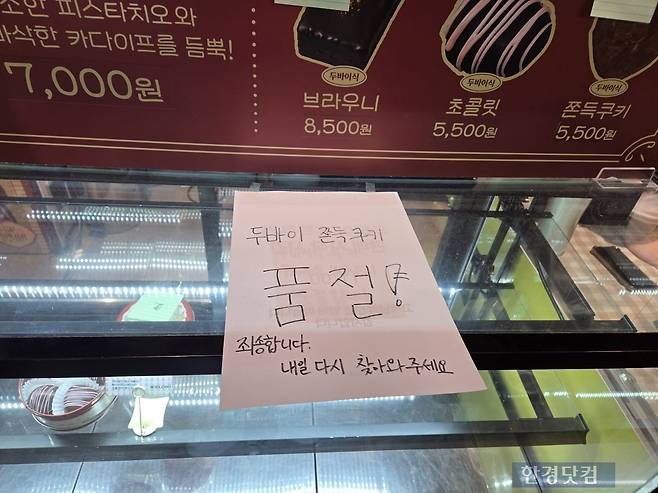 소한 피스타치오와
바삭한 카다이프를 듬뿍!
7,000원
두바이식
브라우니
8,500원
두바이식
초콜릿
5,500원
두바이식
쫀득쿠키
5,500원
두바이 쫀득쿠키
품절!
죄송합니다.
내일 다시 찾아와주세요
한경닷컴